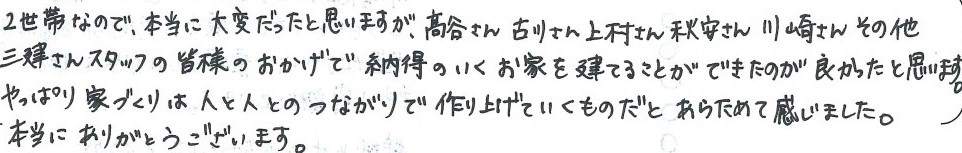 2世帯なので、本当に大変だったと思いますが、高谷さん 古川さん 上村さん 秋安さん 川崎さん その他
三建さんスタッフの皆様のおかげで 納得のいくお家を建てることができたのが良かったと思います。
やっぱり家づくりは人と人とのつながりで作り上げていくものだと あらためて感じました。
本当にありがとうございます。